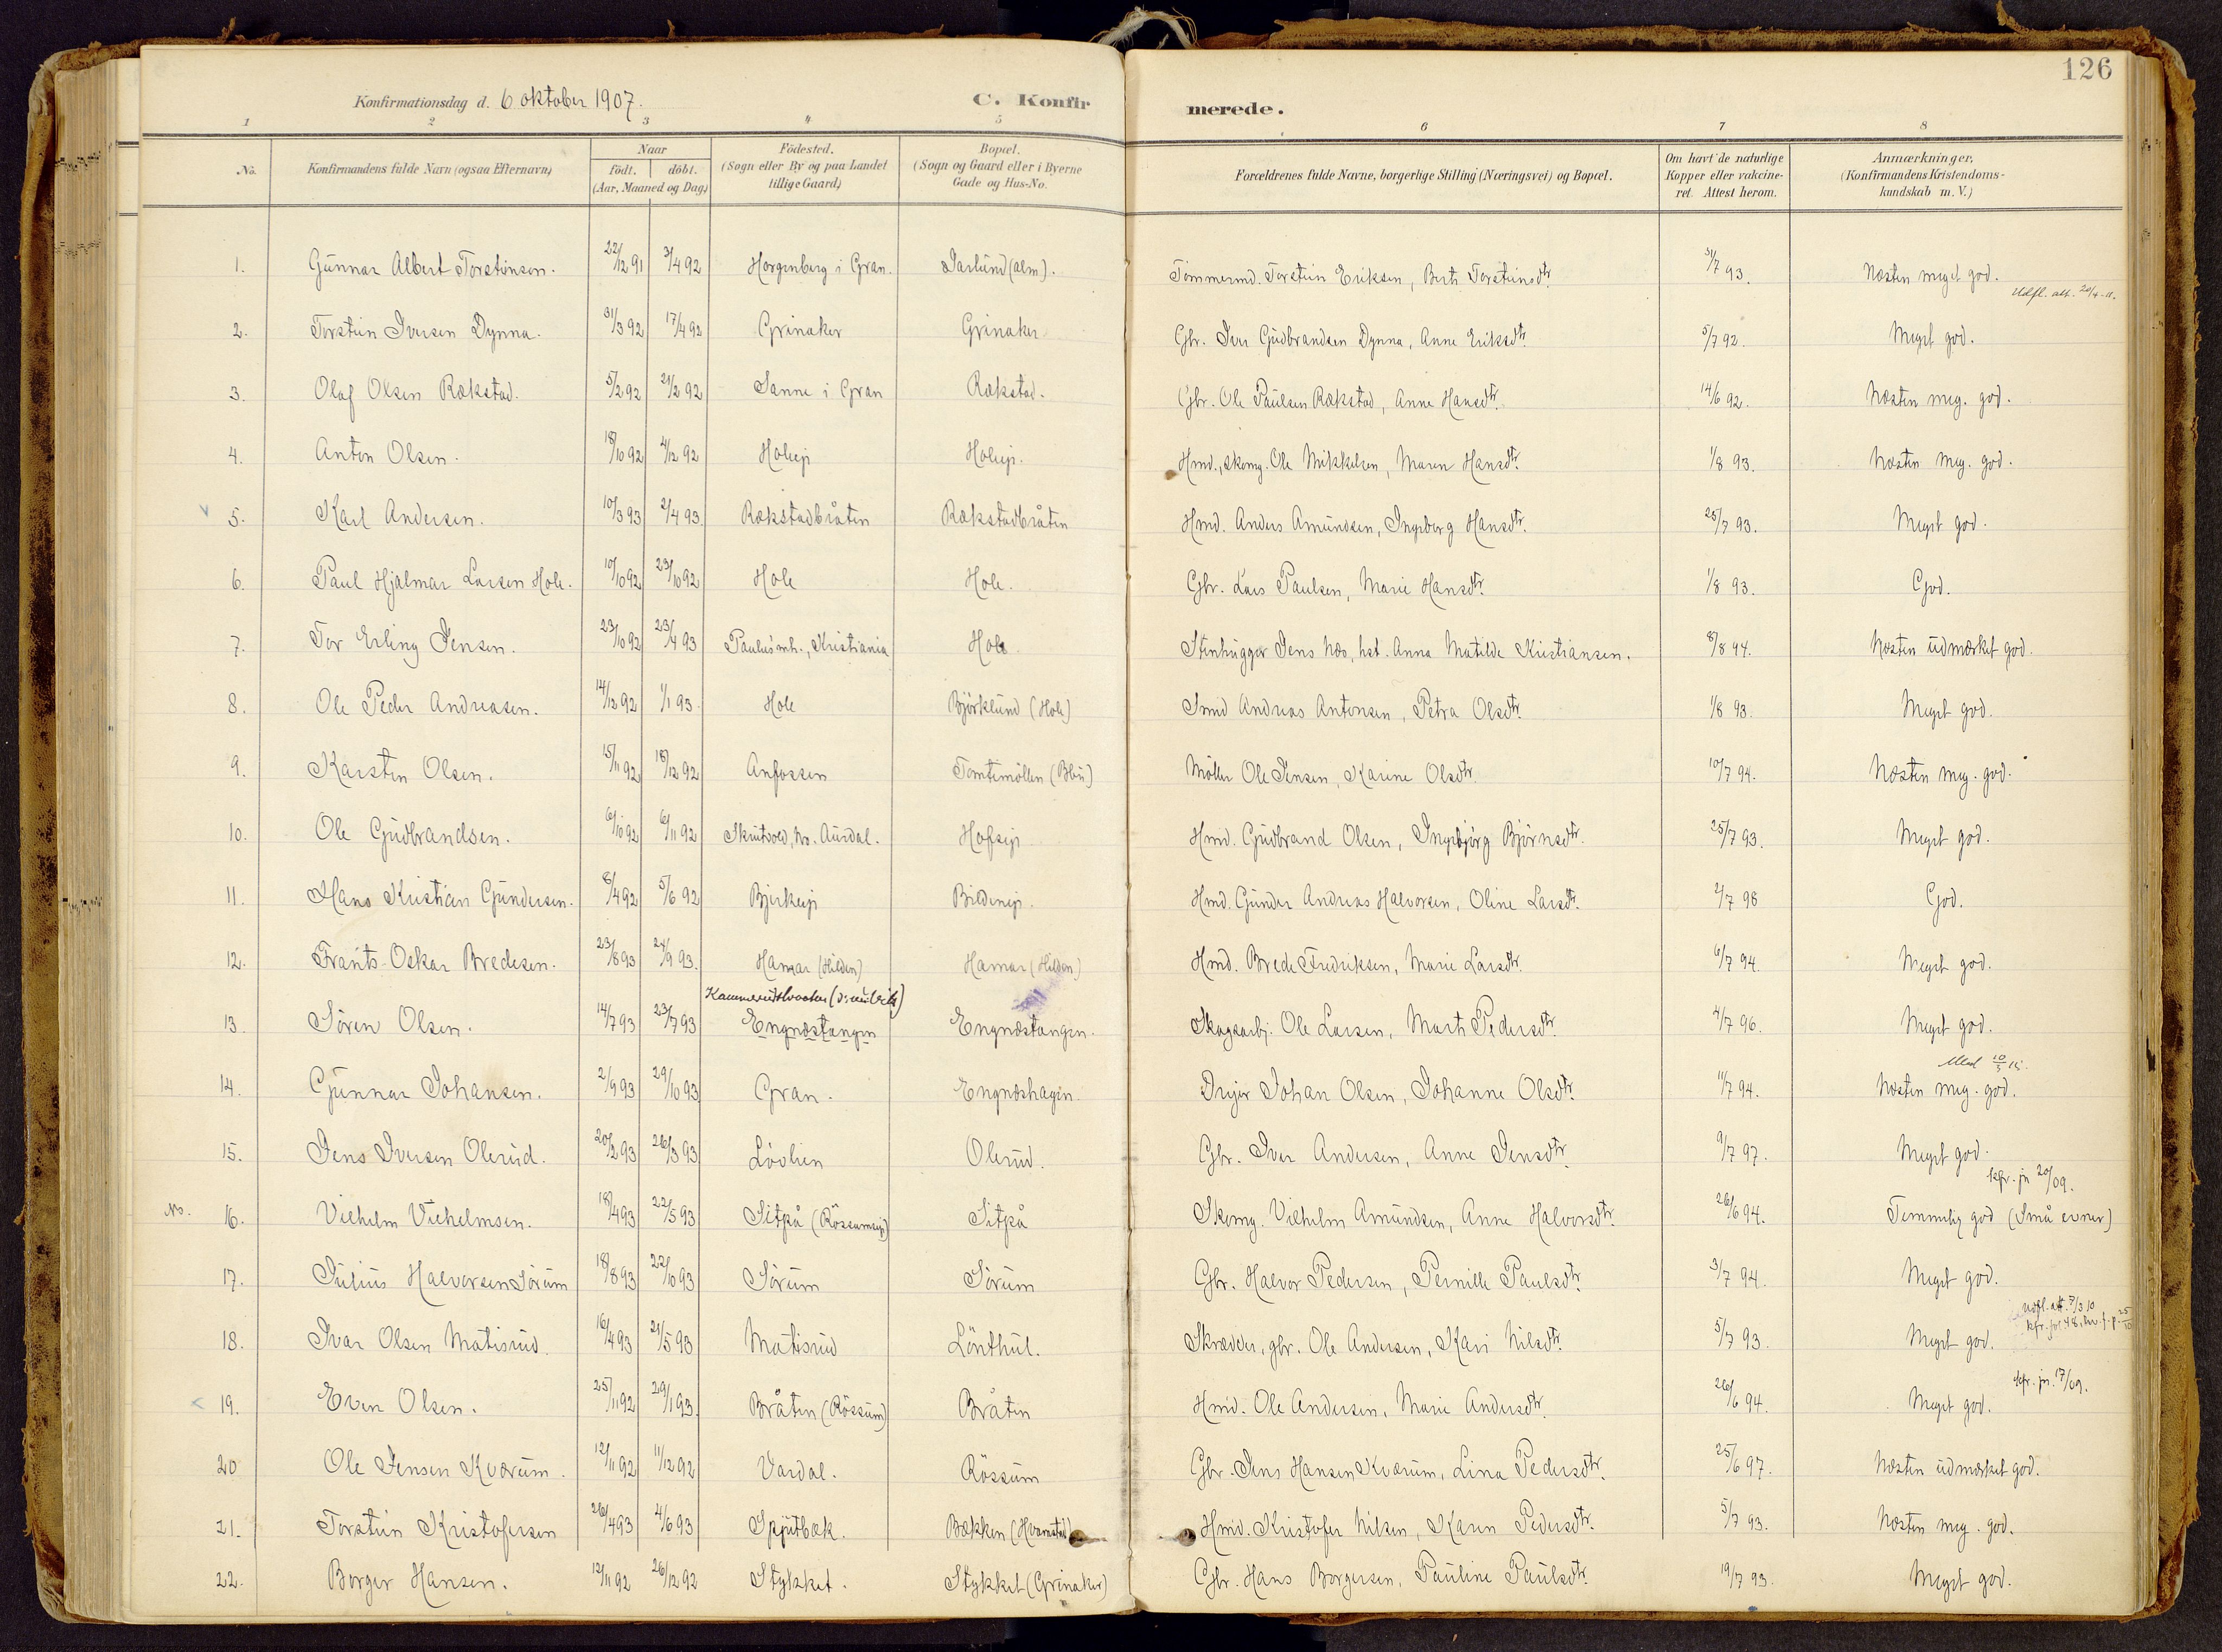 126
Konfirmationsdag d. 6 oktober 1907. C. Konfirmerede.
1 2 3 4 5 6 7 8
No. Konfirmandens fulde Navn (ogsaa Efternavn) Naar födt. döbt. (Aar, Maaned og Dag) Födested. (Sogn eller By og paa Landet tillige Gaard) Bopæl. (Sogn og Gaard eller i Byerne Gade og Hus-No. Forældrenes fulde Navne, borgerlige Stilling (Næringsvei) og Bopæl. Om havt de naturlige Kopper eller vakcineret. Attest herom. Anmærkninger, (Konfirmandens Kristendomskundskab m. V.)
1. Gunnar Albert Torsteinsen. 22/12 91 3/4 92 Horgenberg i Gran. Jarlund (alm). Tömmermd. Torstein Eriksen, Berte Torsteinsdtr. 31/7 93. Næsten meget god.
Udfl. att. 20/4-11.
2. Torstein Iversen Dynna. 31/3 92 17/4 92 Grinaker Grinaker Gbr. Iver Gudbrandsen Dynna, Anne Eriksdtr. 5/7 92. Meget god.
3. Olaf Olsen Rækstad. 5/2 92 21/2 92 Sanne i Gran Rækstad. Gbr. Ole Paulsen Rækstad, Anne Hansdtr. 14/6 92. Næsten meg. god.
4. Anton Olsen. 18/10 92 4/12 92 Holeej Holeej. Hmd., skomg. Ole Mikkelsen, Maren Hansdtr. 1/8 93. Næsten meg. god.
5. Karl Andersen. 10/3 93 2/4 93. Rækstadbråten Rækstadbråten Hmd. Anders Amundsen, Ingeborg Hansdtr. 25/7 93. Meget god.
6. Paul Hjalmar Larsen Hole. 10/10 92 23/10 92 Hole Hole. Gbr. Lars Paulsen, Marie Hansdtr. 1/8 93. God.
7. Tor Erling Jensen. 23/10 92 23/4 93 Paulus mh., Kristiania Hole. Stenhugger Jens Næs, hst. Anna Matilde Kristiansen. 8/8 94. Næsten udmærket god.
8. Ole Peder Andreasen. 14/12 92 1/1 93. Hole Björklund (Hole) Smed Andreas Antonsen, Petra Olsdtr. 1/8 93. Meget god.
9. Karsten Olsen. 15/11 92 18/12 92 Anfossen Tomtemöllen Möller Ole Jensen, Karine Olsdtr. 10/7 94. Næsten meg. god.
10. Ole Gudbrandsen. 6/10 92 6/11 92 Skrutvold, No. Aurdal. Hofsej Hmd. Gudbrand Olsen, Ingebjörg Björnsdtr. 25/7 93. Meget god.
11. Hans Kristian Gundersen. 8/4 92 5/6 92 Bjerkeej Bildenej. Hmd. Gunder Andreas Halvorsen, Oline Larsdtr. 2/7 98 God.
12. Frants Oskar Bredesen. 23/8 93 24/9 93. Hamar (Hilden) Hamar (Hilden) Hmd. Brede Fredriksen, Marie Larsdtr. 6/7 94. Meget god.
13. Sören Olsen. 14/7 93 23/7 93 Engnæstangen Engnæstangen. Skogsarbj. Ole Larsen, Marte Pedersdtr. 4/7 96. Meget god.
14. Gunnar Johansen. 2/9 93 29/10 93 Gran. Engnæshagen. Drejer Johan Olsen, Johanne Olsdtr. 11/7 94. Næsten meg. god.
15. Jens Iversen Olerud. 20/2 93 26/3 93 Lövlien Olerud. Gbr. Iver Andersen, Anne Jensdtr. 9/7 97. Meget god.
kfr. jn 20/09.
No. 16. Vilhelm Vilhelmsen. 18/4 93 22/5 93 Sitpå (Rössumej) Sitpå Skomg. Vilhelm Amundsen, Anne Halvorsdtr. 26/6 94. Temmelig god (Små evner)
17. Julius Halvorsen Sörum 18/8 93 22/10 93 Sörum Sörum Gbr. Halvor Pedersen, Pernille Paulsdtr. 3/7 94. Meget god.
Udfl. att. 7/3 10
18. Ivar Olsen Matisrud. 16/4 93 21/5 93 Matisrud Lönthul. Skrædder, gbr. Ole Andersen, Kari Nilsdtr. 5/7 93. Meget god.
kfr. jn. 17/09.
19. Even Olsen. 25/11 92 29/1 93. Bråten (Rössum) Bråten Hmd. Ole Andersen, Marie Andersdtr. 26/6 94. Meget god.
20 Ole Jensen Kværum. 12/11 92 11/12 92 Vardal. Rössum Gbr. Jens Hansen Kværum, Lina Pedersdtr. 25/6 97. Næsten udmærket god.
21. Torstein Kristofersen 26/4 93 4/6 93 Spjutbæk. Bækken (Hvamstad) Hmd. Kristofer Nilsen, Karen Pedersdtr. 5/7 93. Næsten meg. god.
22. Borger Hansen. 12/11 92 26/12 92 Stykket. Stykket (Grinaker) Gbr. Hans Borgersen, Pauline Paulsdtr. 19/7 93. Meget god.